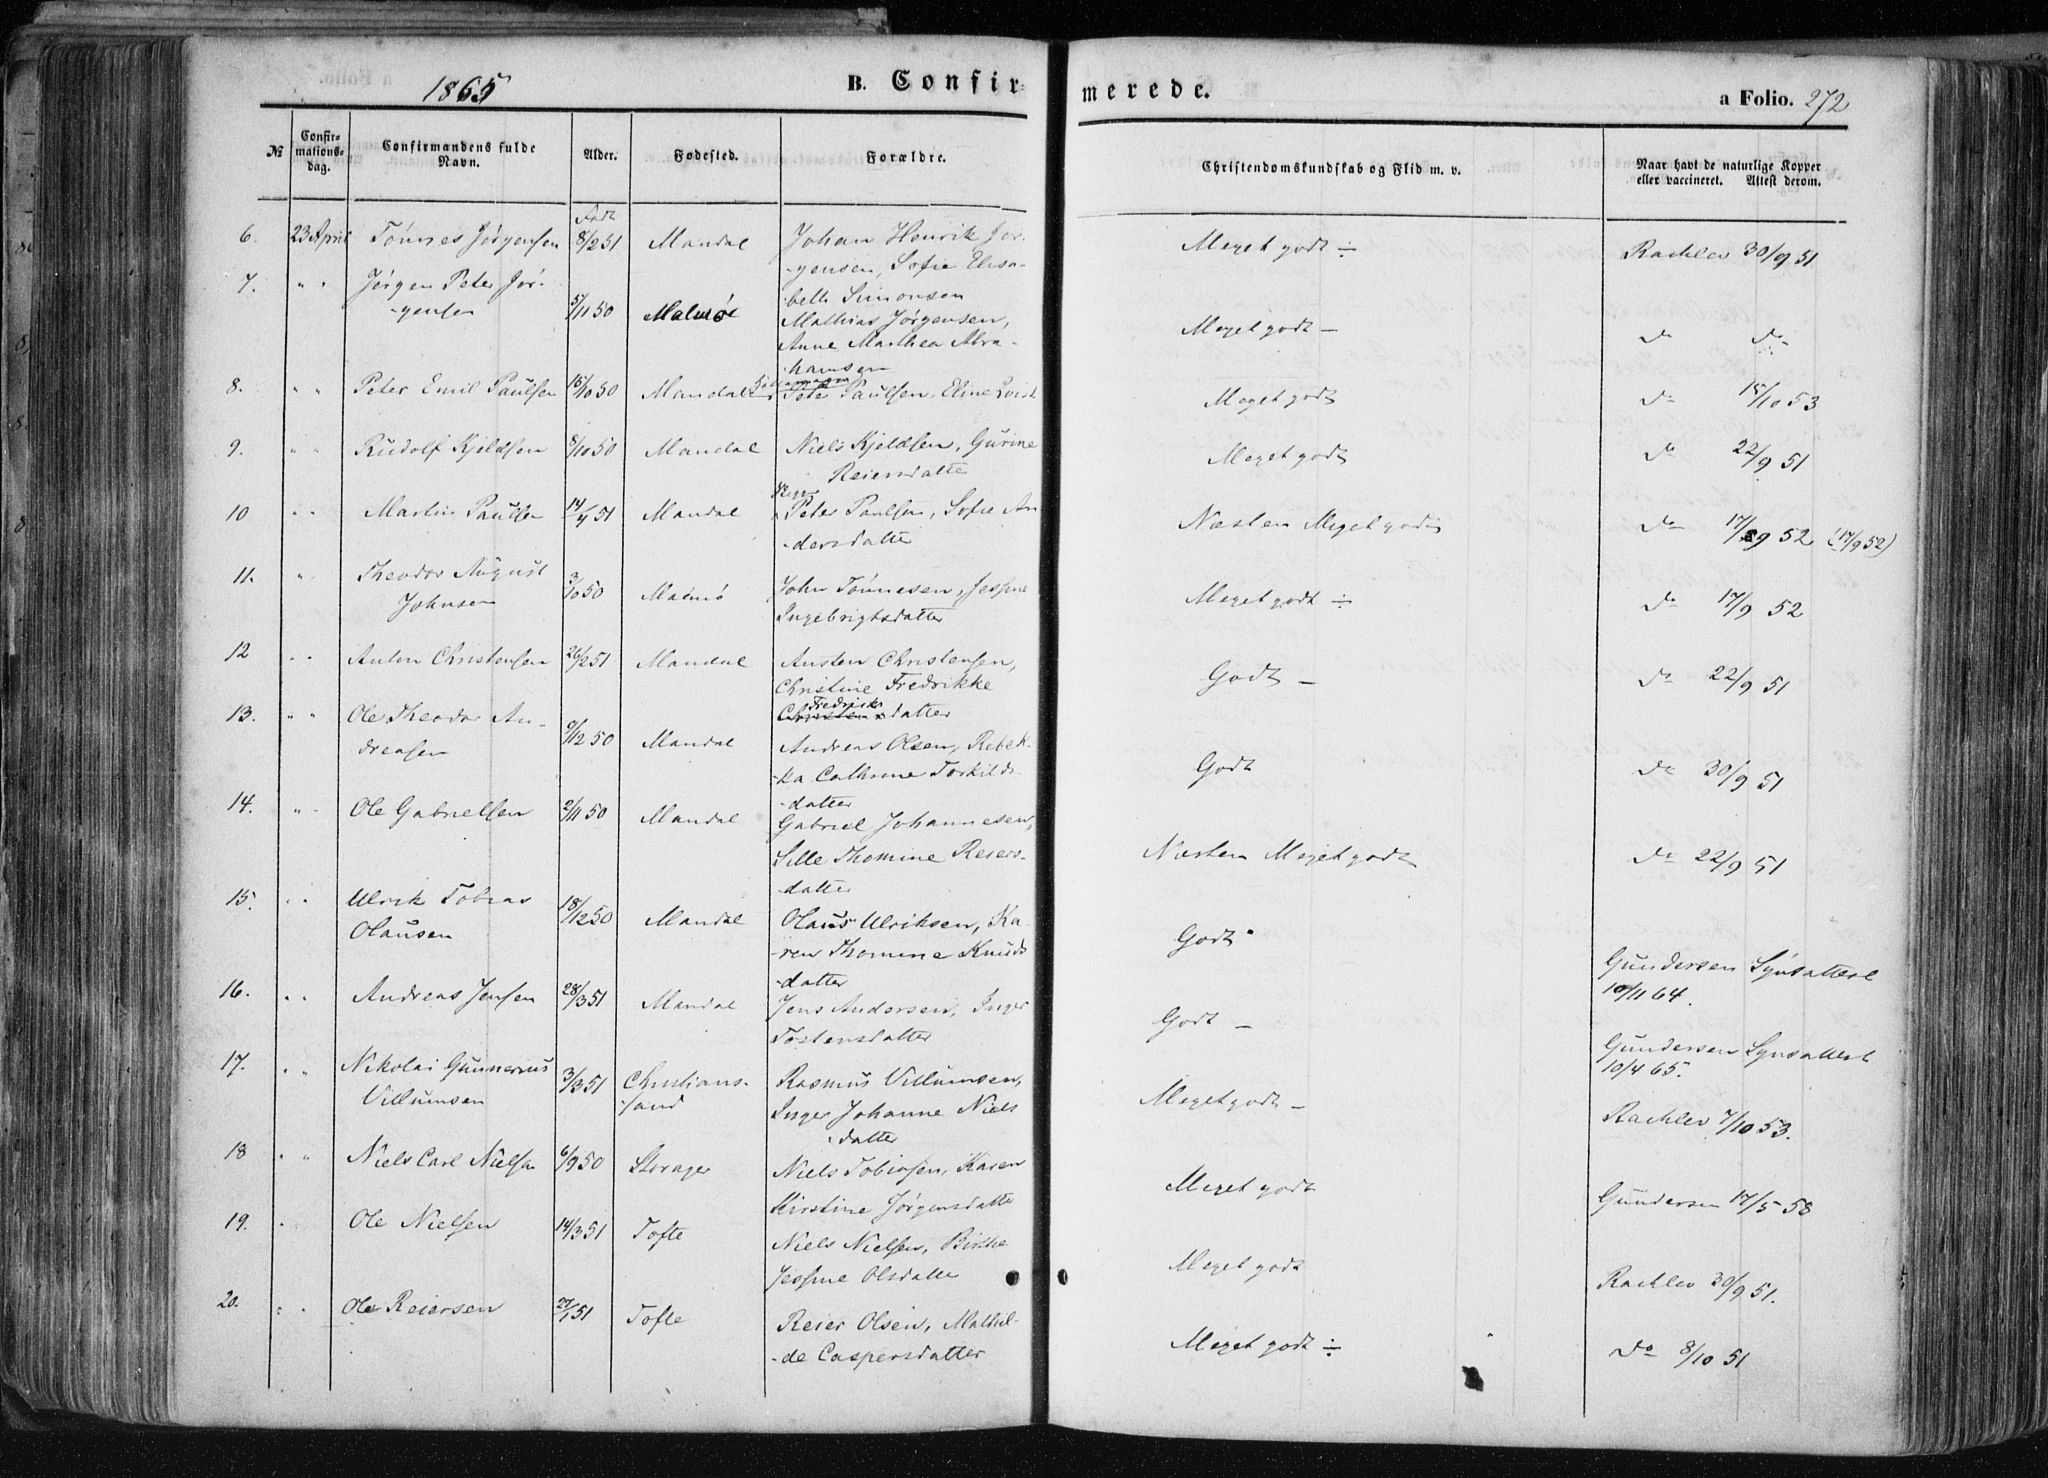 1865 B. Confir- merede. a Folio. 272
№ Confir-mations-dag. Confirmandens fulde Navn. Alder. Fødested. Forældre. Christendomskundskab og Flid m. v. Naar havt de naturlige Kopper eller vaccineret. Attest derom.
6. 23 April Tönnes Jørgensen Født 8/2 51 Mandal Johan Henrik Jør-
-gensen, Sofie Elisa-
-beth Simonsen Meget godt ÷ Rachlev 30/9 51
7. " " Jørgen Peter Jør-
-gensen 5/11 50 Malmøe Mathias Jørgensen,
Anne Marthea Abra-
-hamsen Meget godt – do do
8. " " Peter Emil Paulsen 15/10 50 Mandal Peter Paulsen, Eline Qvist Meget godt do 15/10 53
9. " " Rudolf Kjeldsen 8/10 50 Mandal Niels Kjeldsen, Gurine
Reiersdatter Meget godt do 22/9 51
10 " " Martin Paulsen 14/4 51 Mandal Peter Paulsen, Sofie An
-dersdatter Næsten Meget godt do 17/9 52 (17/9 52)
11. " " Theodor August
Johnsen 3/10 50 Malmø John Tönnesen, Jesine
Ingebrigtsdatter Meget godt ÷ do 17/9 52
12 " " Anton Christensen 26/2 51 Mandal Austen Christensen,
Christine Fredrikke
Fredriks
datter Godt – do 22/9 51
13. " " Ole Theodor An-
dreasen 9/12 50 Mandal Andreas Olsen, Rebek-
-ka Cathrine Torkilds-
-datter Godt do 30/9 51
14. " " Ole Gabrielsen 2/11 50 Mandal Gabriel Johannesen,
Sille Thomine Reiers-
datter Næsten Meget godt do 22/9 51
15. " " Ulrik Tobias
Olausen 18/12 50 Mandal Olaus Ulriksen, Ka-
-ren Thomine Knuds
-datter Godt Gundersen Synsattest
10/11 64.
16. " " Andreas Jensen 28/3 51 Mandal Jens Andersen, Inger
Tostensdatter Godt – Gundersen Synsattest
10/4 65.
17. " " Nikolai Gunnerius
Villumsen 3/3 51 Christians-
-sand Rasmus Villumsen,
Inger Johanne Niels
-datter Meget godt – Rachlev 7/10 53.
18 " " Niels Carl Nielsen 6/9 50 Storager Niels Tobiasen, Karen
Kirstine Jørgensdatter Meget godt Gundersen 17/5 58
19. " Ole Nielsen 14/3 51 Tofte Niels Nielsen, Birthe
Jesine Olsdatter Meget godt Rachlev 30/9 51.
20. " " Ole Reiersen 27/1 51 Tofte Reier Olsen, Mathil-
-de Caspersdatter Meget godt ÷ do 8/10 51